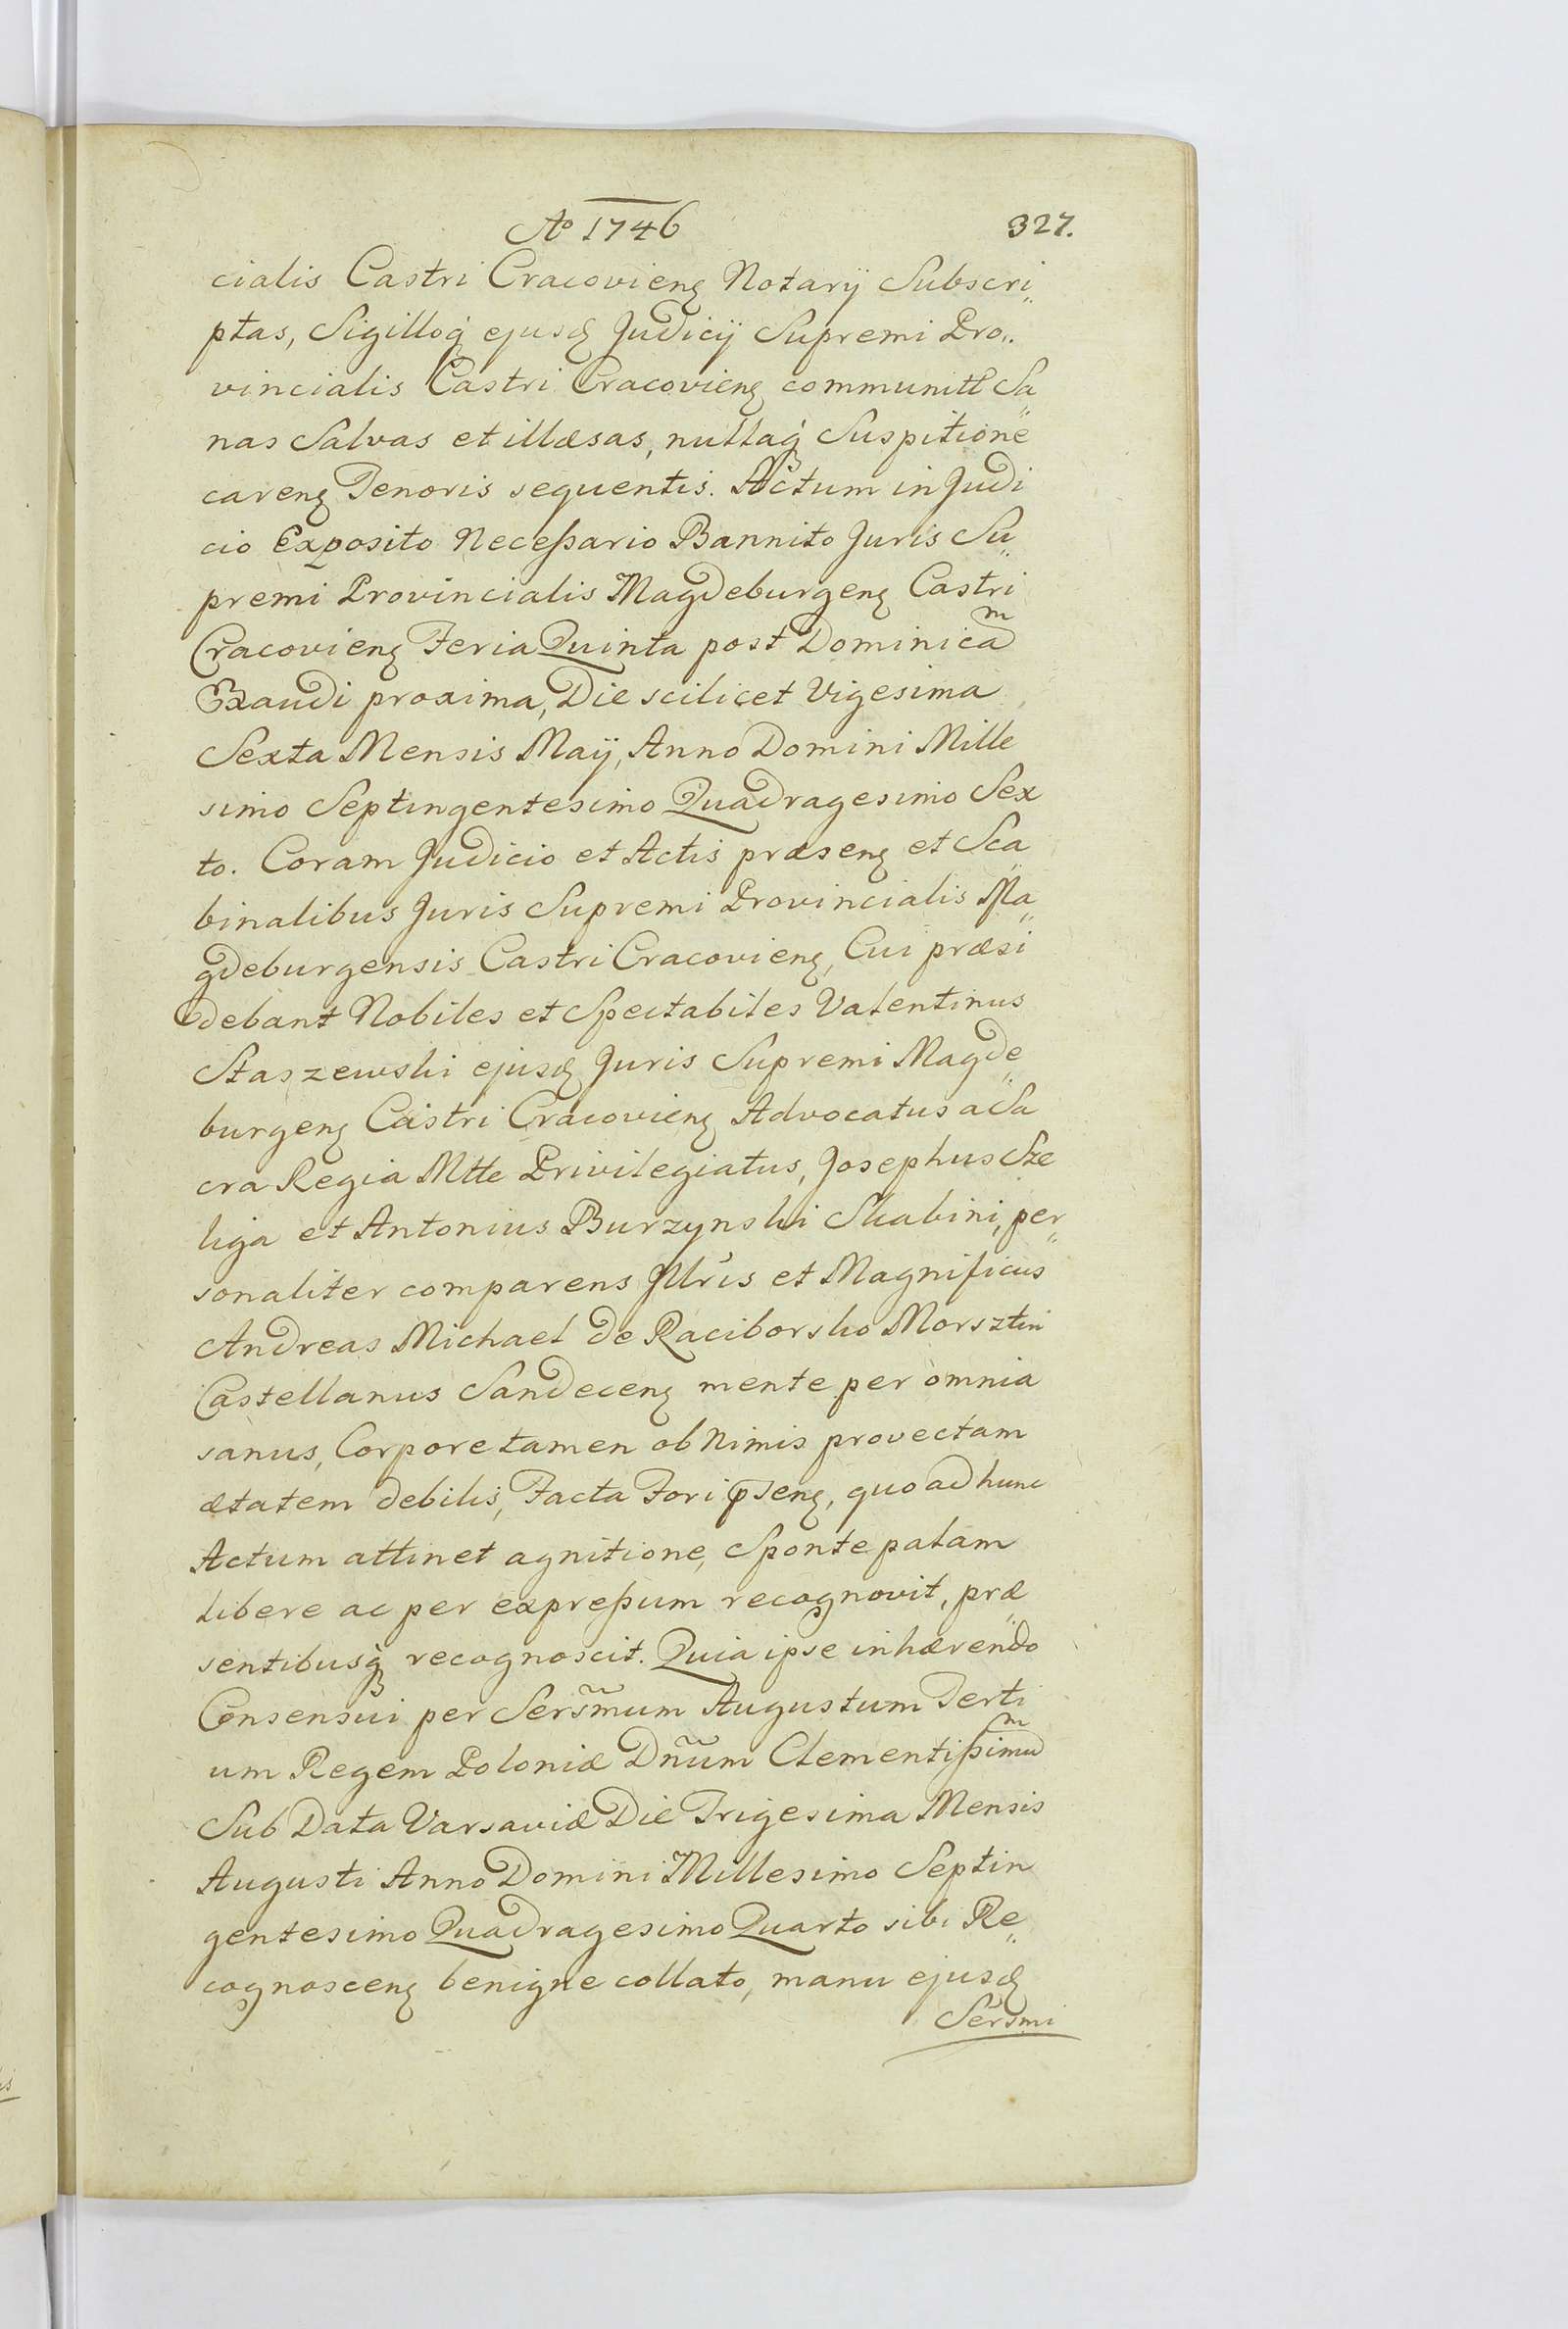 Ao 1746 327.
cialis Castri Cracovien̄ Notarij Subscri„
ptas, Sigilloq̨ ejusd Judicij Supremi Pro„
vincialis Castri Cracovien̄ communitt Sa„
nas Salvas et illæsas, nullaq̨ Suspitione
caren̄ Tenoris sequentis. Actum in Judi
cio Exposito Neceßario Bannito Juris Su„
premi Provincialis Magdeburgen̄ Castri
Cracovien̄ Feria Quinta post Dominicam
Exaudi proxima, Die scilicet Vigesima
Sexta Mensis Maij, Anno Domini Mille
simo Septingentesimo Quadragesimo Sex
to. Coram Judicio et Actis præsen̄ et Sca„
binalibus Juris Supremi Provincialis Ma„
gdeburgensis Castri Cracovien̄, Cui præsi
debant Nobiles et Spectabiles Valentinus
Staszewski ejusd Juris Supremi Magde„
burgen̄ Castri Cracovien̄ Advocatus a Sa
cra Regia Mtte Privilegiatus, Josephus Sze
liga et Antonius Burzynski Skabini, per„
sonaliter comparens Jllris et Magnificus
Andreas Michael de Raciborsko Morsztin
Castellanus Sandecen̄ mente per omnia
sanus, Corpore tamen ob Nimis provectam
ætatem debilis, Facta Fori p̄sen̄, quo ad hunc
Actum attinet agnitione, Sponte palam
libere ac per expreßum recognovit, præ„
sentibusq̨ recognoscit. Quia ipse inhærendo
Consensui per Sers̃mum Augustum Terti
um Regem Poloniæ Dñum Clementißimum
Sub Data Varsaviæ Die Trigesima Mensis
Augusti Anno Domini Millesimo Septin
gentesimo Quadragesimo Quarto sibi Re„
cognoscen̄ benigne collato, manu ejusd
Sersmi